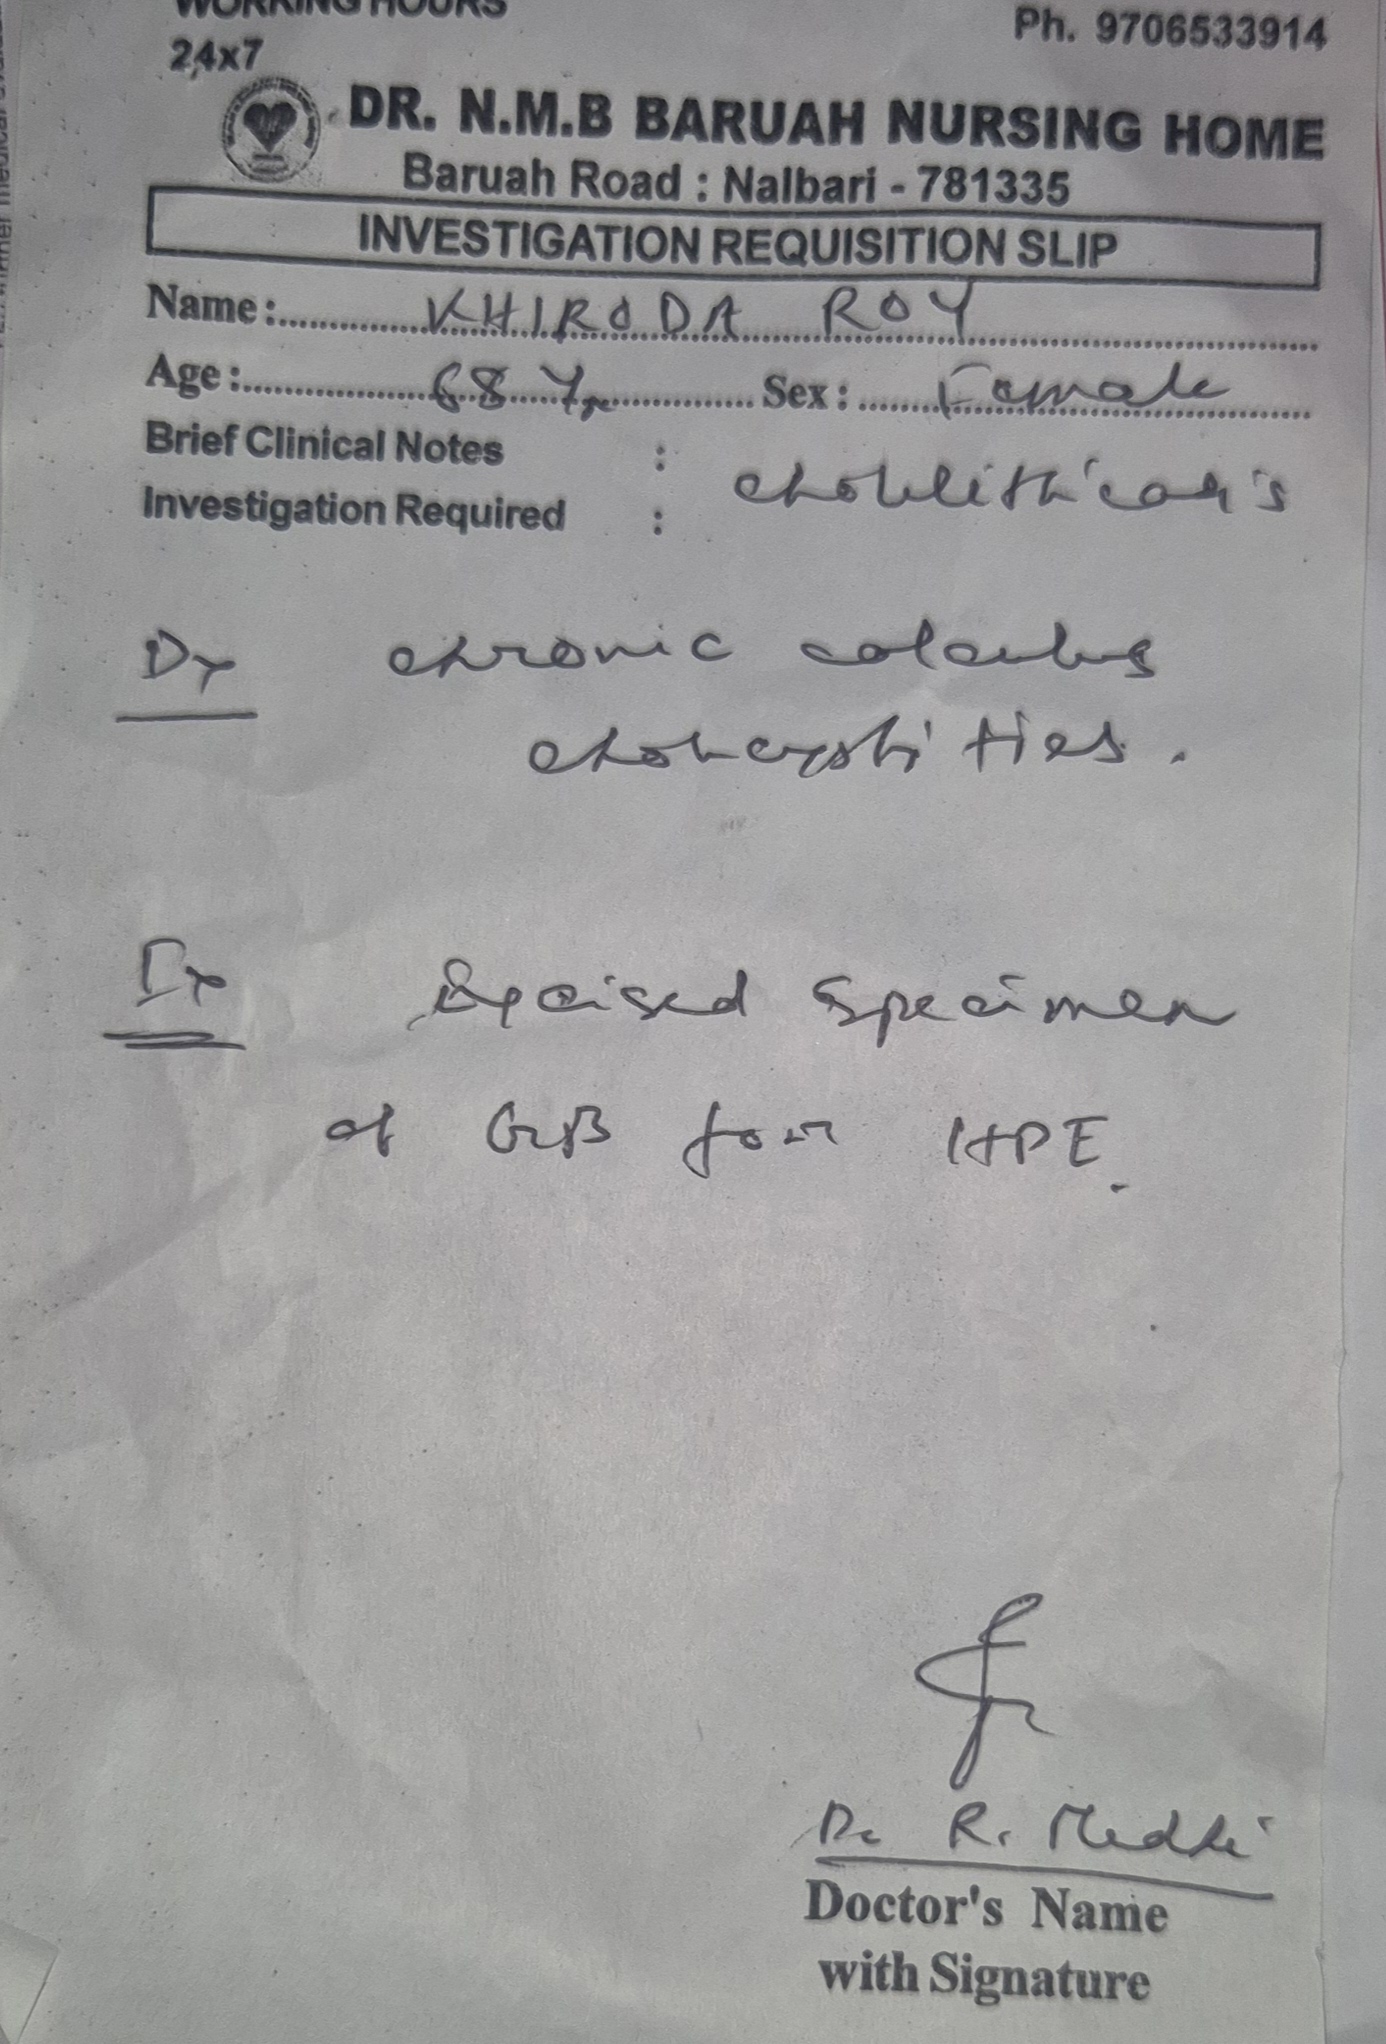 WORKING HOURS
24x7
Ph. 9706533914
DR. N.M.B BARUAH NURSING HOME
Baruah Road : Nalbari - 781335
INVESTIGATION REQUISITION SLIP
Name: KHIRODA ROY
Age: 68 Yrs Sex: Female
Brief Clinical Notes :
Investigation Required :
Dx chronic calculus
Ix Excised Specimen
of GB for HPE.
Dr R. Medhi
Doctor's Name
with Signature